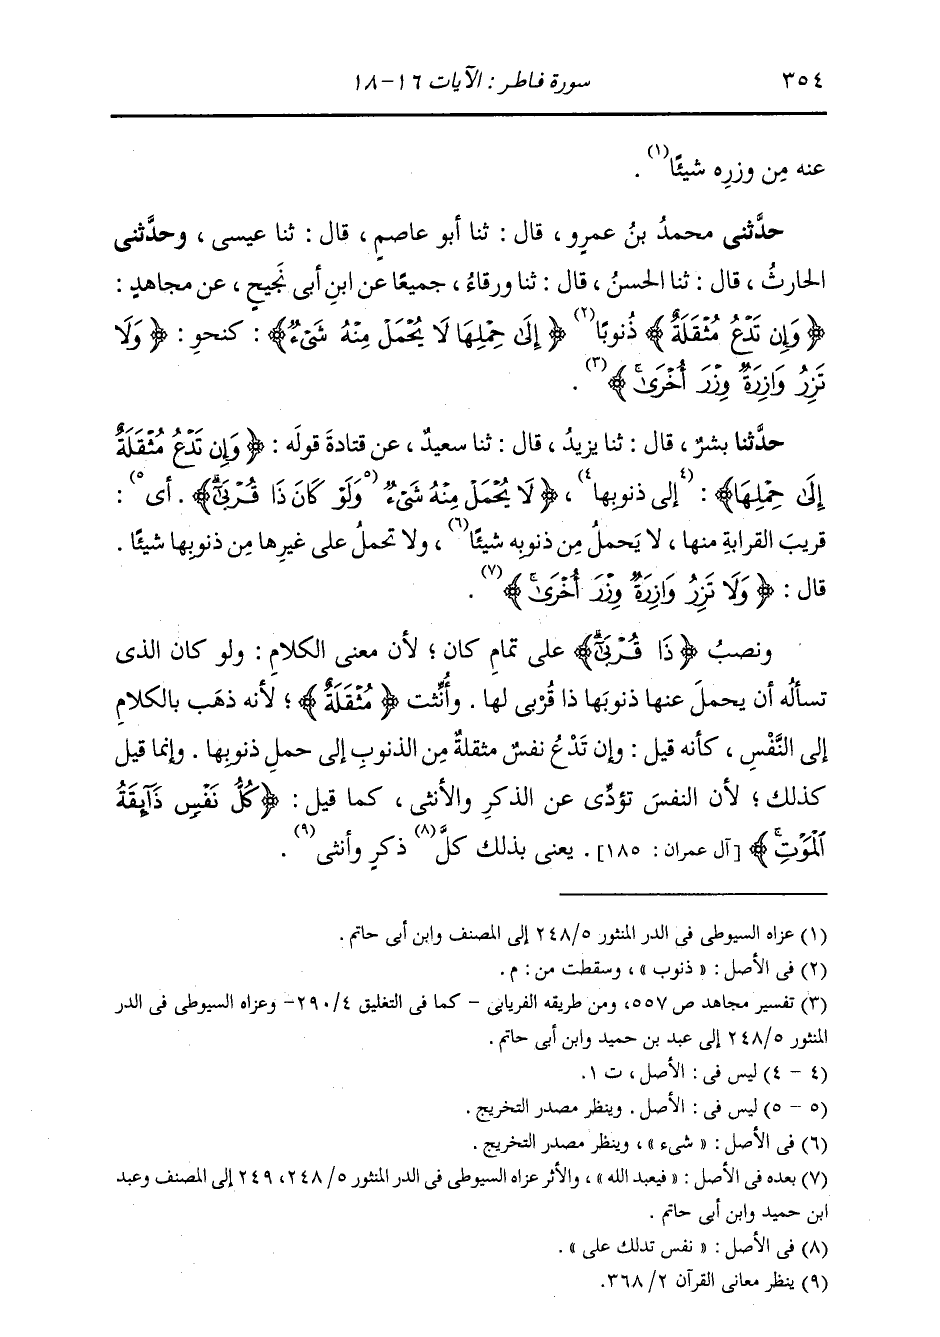 ٣٥٤ سورة فاطر : الآيات ١٦-١٨
عنه مِن وزرِه شيئًا(١) .
حدَّثنى محمدُ بنُ عمرٍو ، قال : ثنا أبو عاصمٍ ، قال : ثنا عيسى ، وحدَّثنى
الحارثُ ، قال : ثنا الحسنُ ، قال : ثنا ورقاءُ ، جميعًا عن ابنِ أبى نَجيحٍ ، عن مجاهدٍ :
﴿ وَإِن تَدْعُ مُثْقَلَةٌ ﴾ ذُنوبًا(٢) ﴿ إِلَىٰ حِمْلِهَا لَا يُحْمَلْ مِنْهُ شَىْءٌ ﴾ : كنحوِ : ﴿ وَلَا
تَزِرُ وَازِرَةٌ وِزْرَ أُخْرَىٰ ۚ ﴾(٣) .
حدَّثنا بشرٌ ، قال : ثنا يزيدُ ، قال : ثنا سعيدٌ ، عن قتادةَ قولَه : ﴿ وَإِن تَدْعُ مُثْقَلَةٌ
إِلَىٰ حِمْلِهَا ﴾ : (٤إلى ذنوبِها٤) ، ﴿ لَا يُحْمَلْ مِنْهُ شَىْءٌ (٥وَلَوْ كَانَ ذَا قُرْبَىٰٓ ۗ ﴾ . أى٥) :
قريبَ القرابةِ منها ، لا يَحملُ مِن ذنوبِه شيئًا(٦) ، ولا تحملُ على غيرِها مِن ذنوبِها شيئًا .
قال : ﴿ وَلَا تَزِرُ وَازِرَةٌ وِزْرَ أُخْرَىٰ ۚ ﴾(٧) .
ونصبُ ﴿ ذَا قُرْبَىٰٓ ۗ ﴾ على تمامِ كان ؛ لأن معنى الكلامِ : ولو كان الذى
تسألُه أن يحملَ عنها ذنوبَها ذا قُربى لها . وأُنِّثت ﴿ مُثْقَلَةٌ ﴾ ؛ لأنه ذهَب بالكلامِ
إلى النَّفْسِ ، كأنه قيل : وإن تَدْعُ نفسٌ مثقلةٌ مِن الذنوبِ إلى حملِ ذنوبِها . وإنما قيل
كذلك ؛ لأن النفسَ تؤدِّى عن الذكرِ والأنثى ، كما قيل : ﴿ كُلُّ نَفْسٍ ذَآئِقَةُ
ٱلْمَوْتِ ۗ ﴾ [آل عمران : ١٨٥] . يعنى بذلك كلَّ(٨) ذكرٍ وأنثى(٩) .
(١) عزاه السيوطى فى الدر المنثور ٢٤٨/٥ إلى المصنف وابن أبى حاتم .
(٢) فى الأصل : « ذنوب » ، وسقطت من : م .
(٣) تفسير مجاهد ص ٥٥٧، ومن طريقه الفريابى - كما فى التغليق ٢٩٠/٤- وعزاه السيوطى فى الدر
المنثور ٢٤٨/٥ إلى عبد بن حميد وابن أبى حاتم .
(٤ - ٤) ليس فى : الأصل ، ت ١.
(٥ - ٥) ليس فى : الأصل . وينظر مصدر التخريج .
(٦) فى الأصل : « شىء » ، وينظر مصدر التخريج .
(٧) بعده فى الأصل : « فيعبد الله » ، والأثر عزاه السيوطى فى الدر المنثور ٢٤٨/٥، ٢٤٩ إلى المصنف وعبد
ابن حميد وابن أبى حاتم .
(٨) فى الأصل : « نفس تدلك على » .
(٩) ينظر معانى القرآن ٣٦٨/٢.